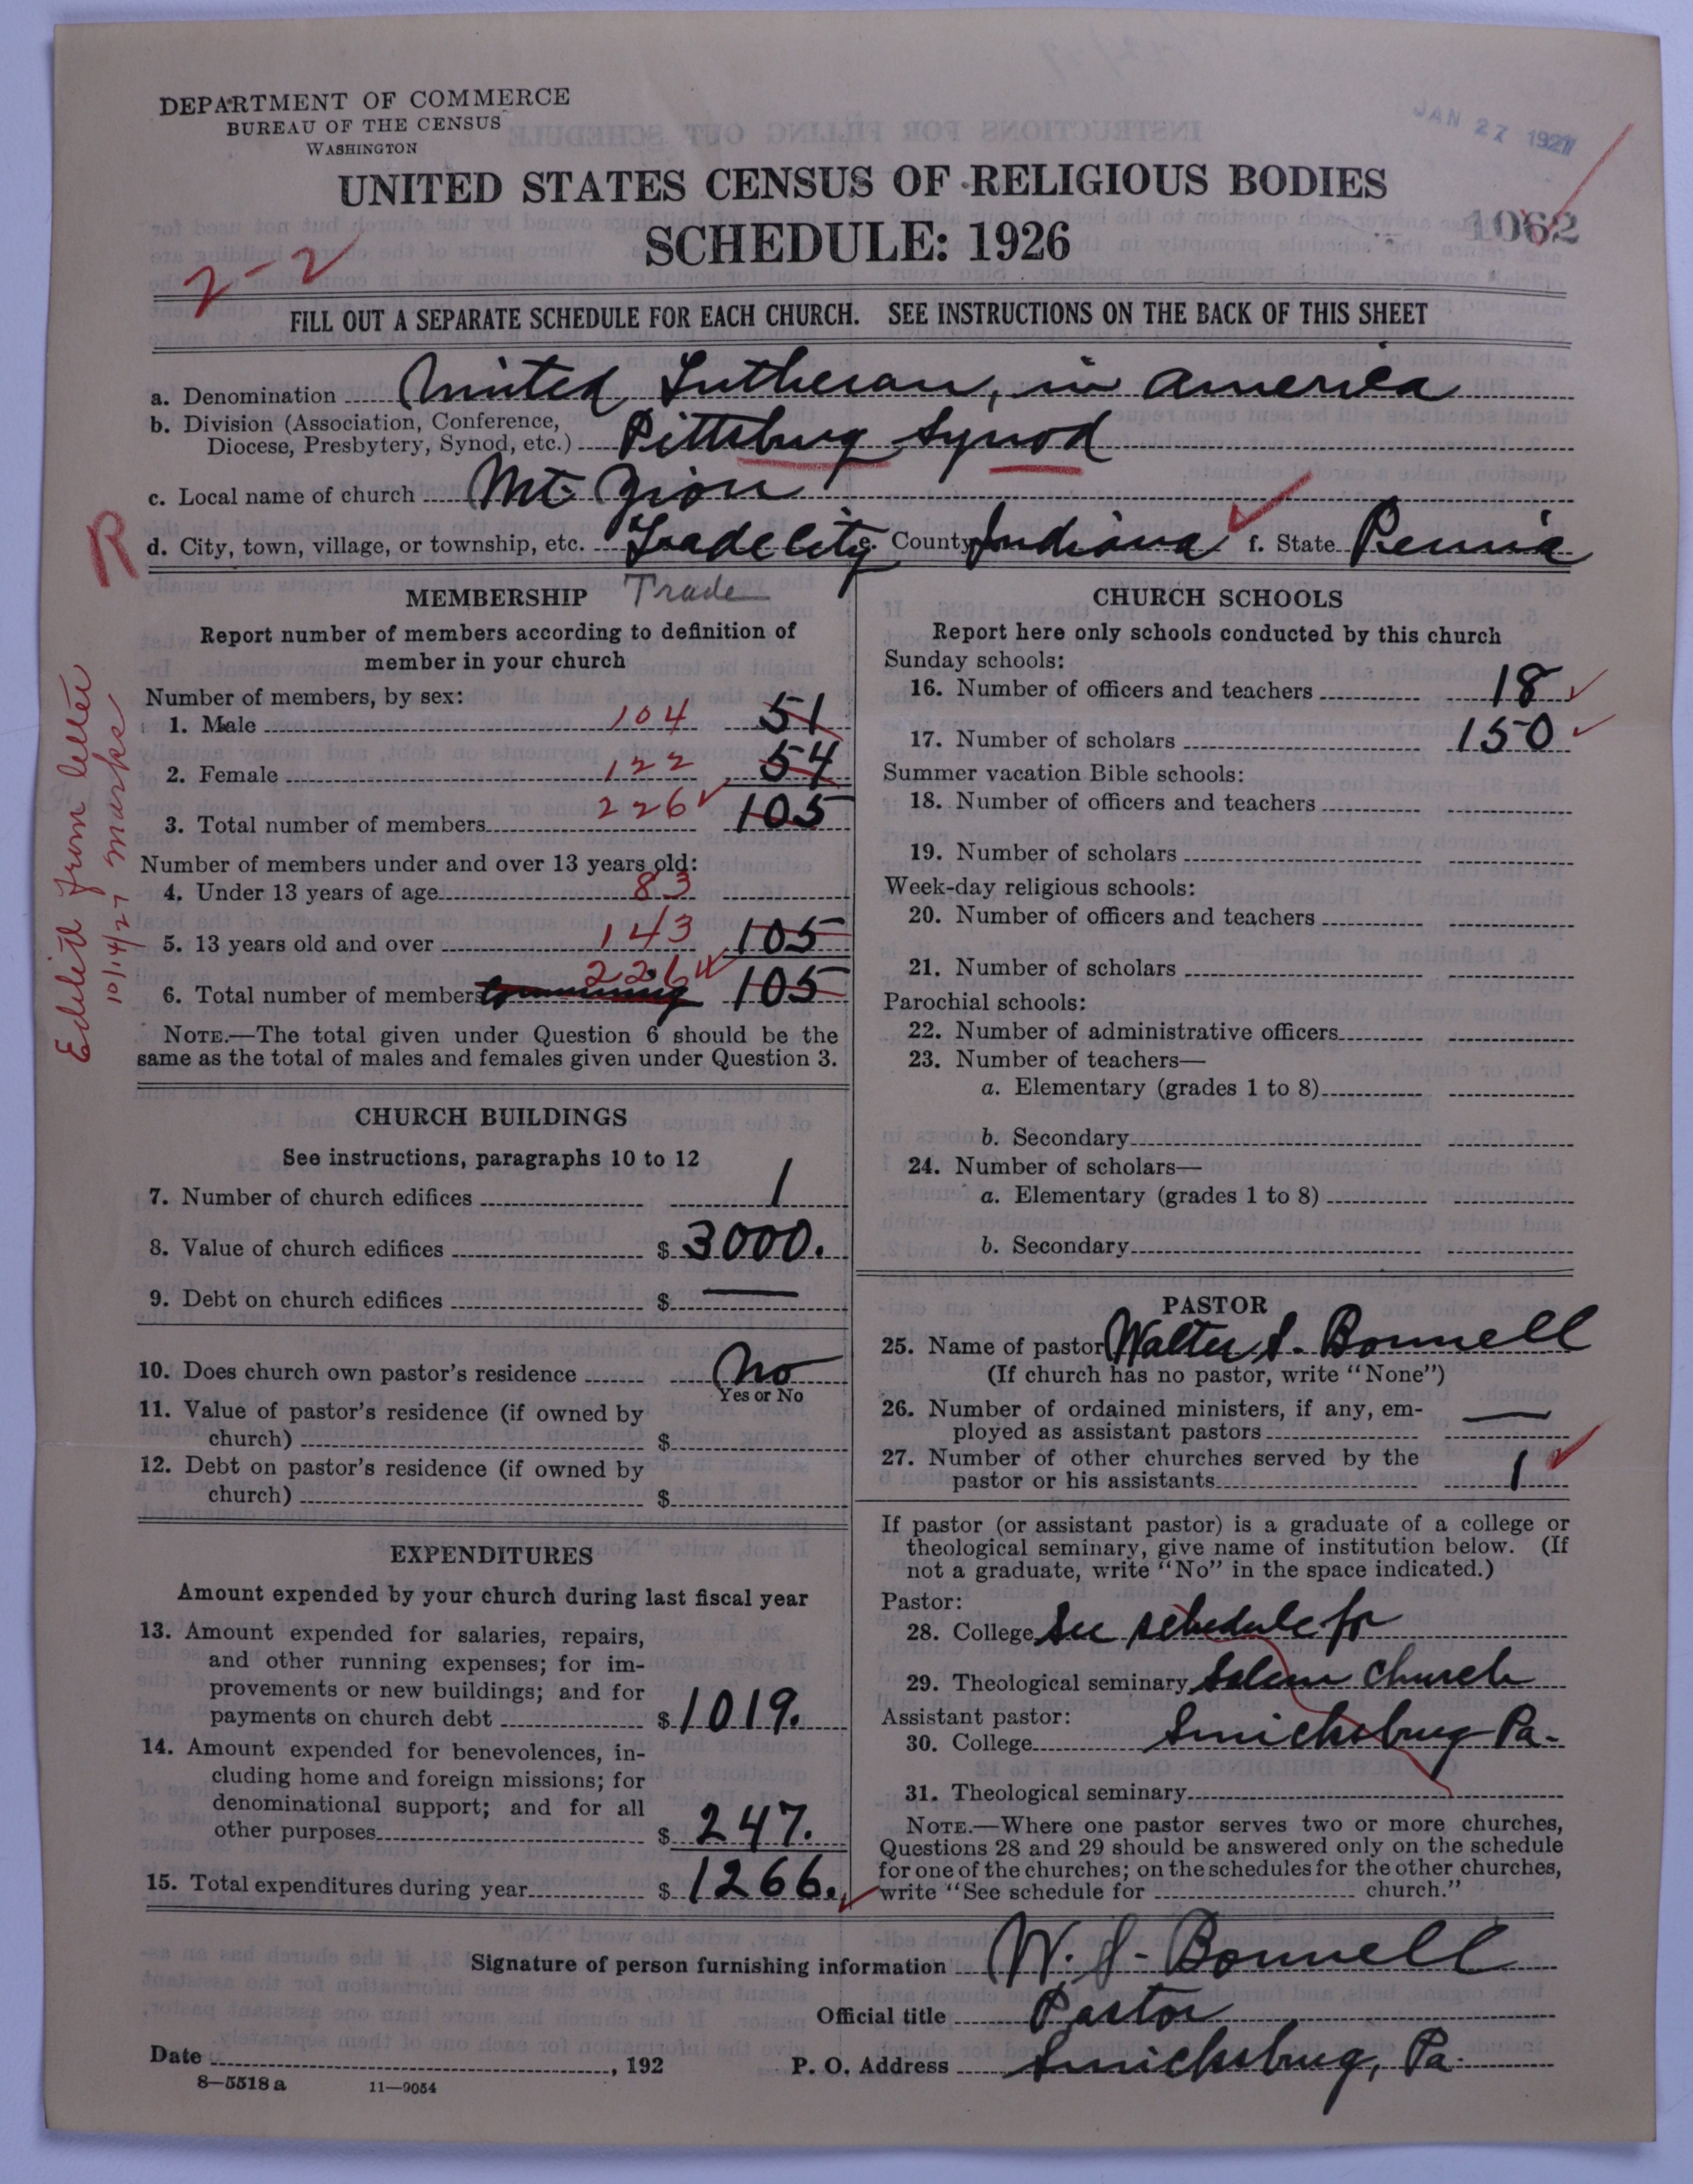 JAN 27 1927
DEPARTMENT OF COMMERCE
BUREAU OF THE CENSUS
WASHINGTON
UNITED STATES CENSUS OF RELIGIOUS BODIES
SCHEDULE: 1926
1062
2-2
FILL OUT A SEPARATE SCHEDULE FOR EACH CHURCH. SEE INSTRUCTIONS ON THE BACK OF THIS SHEET
a. Denomination United Lutheran, in America
b. Division (Association, Conference,
Diocese, Presbytery, Synod, etc.) Pittsburg Synod
c. Local name of church Mt. Zion
R
d. City, town, village, or township, etc. Tradecity e. County Indiana f. State Penna
Trade
Edited from letter
10/14/27 Marks
MEMBERSHIP
Report number of members according to definition of
member in your church
Number of members, by sex:
1. Male 104 51
2. Female 122 54
3. Total number of members 226 105
Number of members under and over 13 years old:
4. Under 13 years of age 83
5. 13 years old and over 143 105
6. Total number of members communing 226 105
NOTE.—The total given under Question 6 should be the
same as the total of males and females given under Question 3.
CHURCH BUILDINGS
See instructions, paragraphs 10 to 12
7. Number of church edifices 1
8. Value of church edifices $ 3000.
9. Debt on church edifices $ —
10. Does church own pastor's residence No
Yes or No
11. Value of pastor's residence (if owned by
church) $
12. Debt on pastor's residence (if owned by
church) $
EXPENDITURES
Amount expended by your church during last fiscal year
13. Amount expended for salaries, repairs,
and other running expenses; for im-
provements or new buildings; and for
payments on church debt $ 1019.
14. Amount expended for benevolences, in-
cluding home and foreign missions; for
denominational support; and for all
other purposes $ 247.
15. Total expenditures during year $ 1266.
CHURCH SCHOOLS
Report here only schools conducted by this church
Sunday schools:
16. Number of officers and teachers 18
17. Number of scholars 150
Summer vacation Bible schools:
18. Number of officers and teachers
19. Number of scholars
Week-day religious schools:
20. Number of officers and teachers
21. Number of scholars
Parochial schools:
22. Number of administrative officers
23. Number of teachers—
a. Elementary (grades 1 to 8)
b. Secondary
24. Number of scholars—
a. Elementary (grades 1 to 8)
b. Secondary
PASTOR
25. Name of pastor Walter S. Bonnell
(If church has no pastor, write "None")
26. Number of ordained ministers, if any, em-
ployed as assistant pastors —
27. Number of other churches served by the
pastor or his assistants 1
If pastor (or assistant pastor) is a graduate of a college or
theological seminary, give name of institution below. (If
not a graduate, write "No" in the space indicated.)
Pastor:
28. College See schedule for
29. Theological seminary Salem Church
Assistant pastor:
30. College Smicksburg Pa.
31. Theological seminary
NOTE.—Where one pastor serves two or more churches,
Questions 28 and 29 should be answered only on the schedule
for one of the churches; on the schedules for the other churches,
write "See schedule for church."
Signature of person furnishing information W. S. Bonnell
Official title Pastor
Date , 192 P. O. Address Smicksburg, Pa.
8—5518 a 11—9054